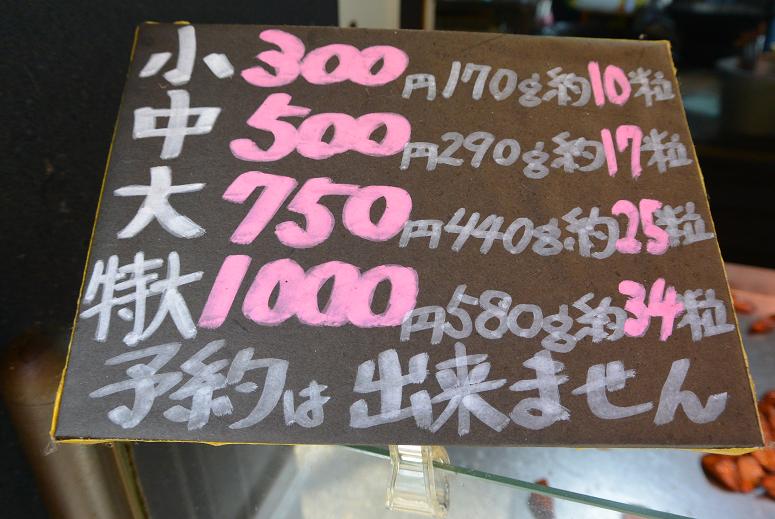 小 300円 170g 約10粒
中 500円 290g 約17粒
大 750円 440g 約25粒
特大 1000円 580g 約34粒
予約は出来ません